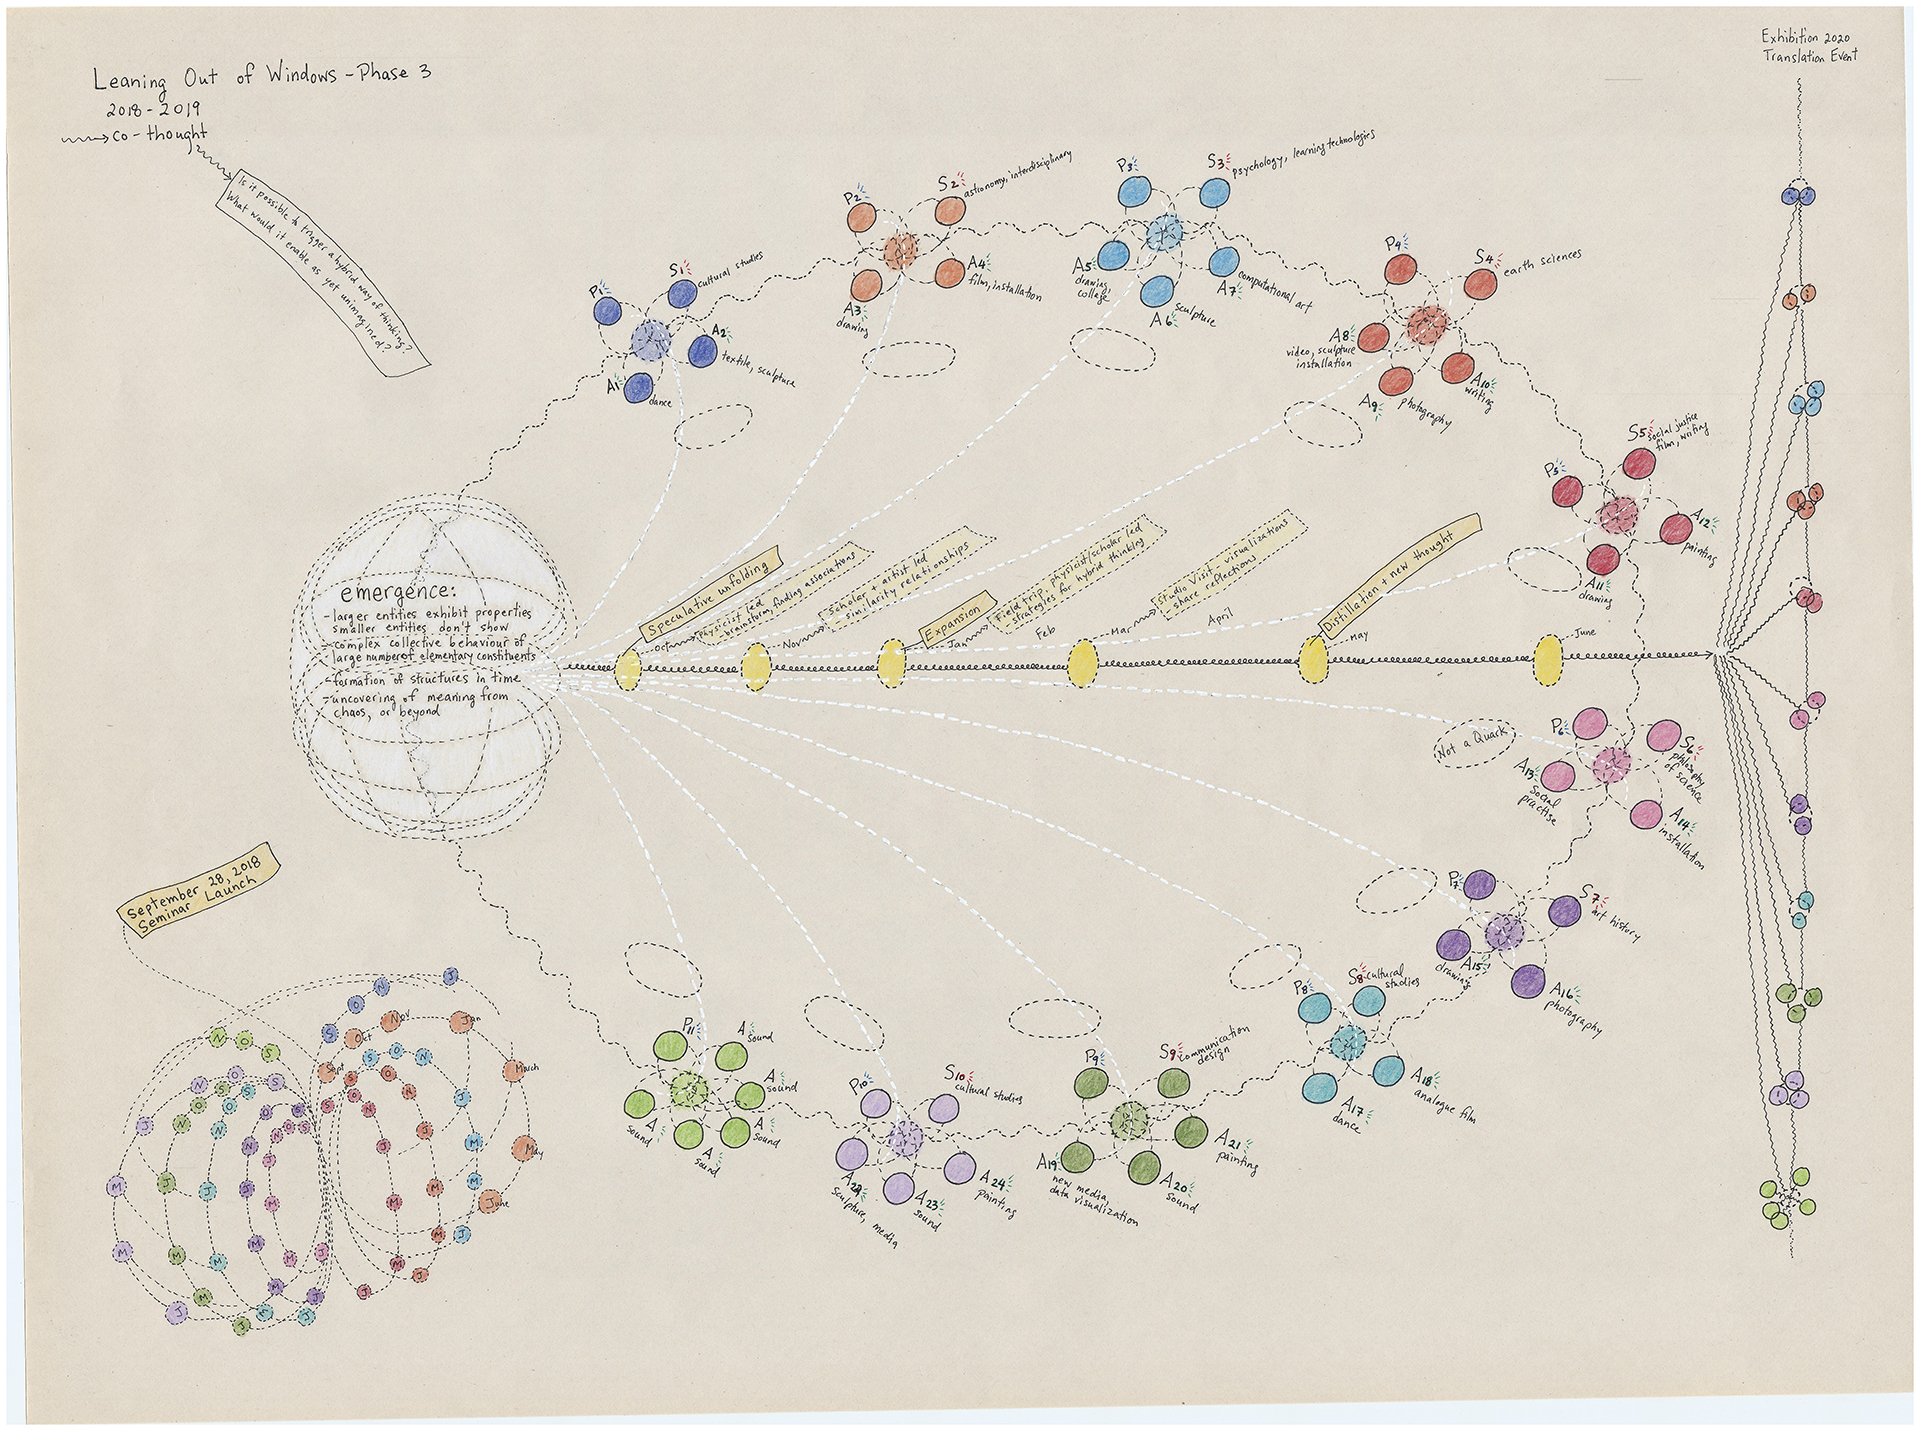 Leaning Out of Windows - Phase 3
2018 - 2019
co-thought
Is it possible to trigger a hybrid way of thinking?
What would it enable as yet unimagined?
Exhibition 2020
Translation Event
P1
S1
cultural studies
A2
textile, sculpture
A1
dance
P2
S2
astronomy, interdisciplinary
A4
film, installation
A3
drawing
P3
S3
psychology, learning technologies
A5
drawing,
collage
A7
computational art
A6
sculpture
P4
S4
earth sciences
A8
video, sculpture
installation
A10
writing
A9
photography
S5
social justice
film, writing
P5
A12
painting
A11
drawing
emergence:
- larger entities exhibit properties
smaller entities don't show
- complex collective behaviour of
large number of elementary constituents
- formation of structures in time
- uncovering of meaning from
chaos, or beyond
Speculative unfolding
Oct
physicist led
brainstorm, finding associations
Nov
Scholar + artist led
similarity relationships
Expansion
Jan
Field trip, physicist/scholar led
strategies for hybrid thinking
Feb
Mar
Studio Visit - visualizations
- share reflections
April
Distillation + new thought
May
June
Not a Quark
P6
S6
philosophy
of science
A13
social
practise
A14
installation
P7
S7
art history
A15
drawing
A16
photography
P8
S8
cultural
studies
A17
dance
A18
analogue film
P9
S9
communication
design
A19
new media,
data visualization
A20
sound
A21
painting
P10
S10
cultural studies
A22
sculpture, media
A23
sound
A24
Painting
P11
A
sound
A
sound
A
sound
A
sound
A
sound
September 28, 2018
Seminar Launch
J
N
O
S
Sept
Oct
Nov
Jan
March
May
June
S
O
N
J
M
M
J
N
O
S
J
M
M
J